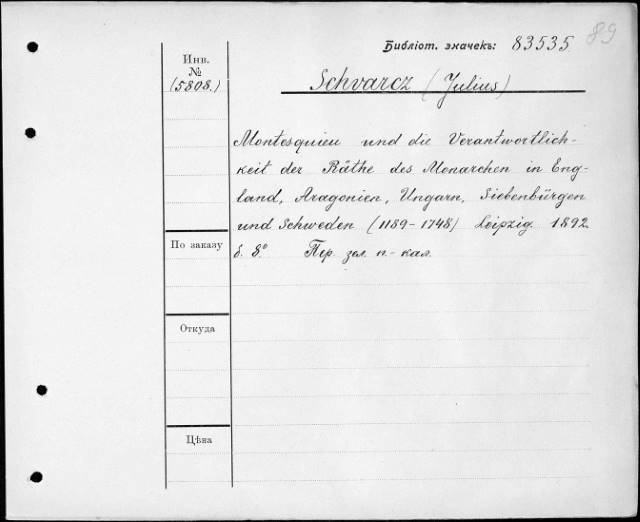 Библіот. значекъ: 83535
89
Инв.
№
(5808.)
Schvarcz (Julius)
Montesquieu und die Verantwortlich-
keit der Räthe des Monarchen in Eng-
land, Aragonien, Ungarn, Siebenbürgen
und Schweden (1189-1748) Leipzig. 1892.
8º Пер. зол. п.-кал.
По заказу
Откуда
Цѣна